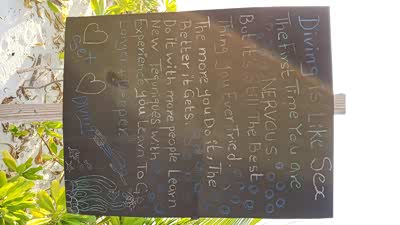 Diving is Like Sex
The first Time You are
NERVOUS
But it's still The Best
Thing you Ever Tried
The more you Do it, The
Better it Gets.
Do it with more people Learn
New Tequnques with
Experience you Learn To Go
Longer Deeper
Sex Diving